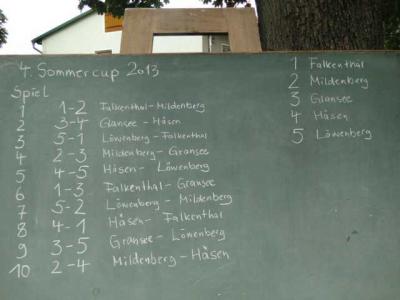 4. Sommercup 2013
Spiel
1 1-2 Falkenthal - Mildenberg
2 3-4 Gransee - Håsen
3 5-1 Löwenberg - Falkenthal
4 2-3 Mildenberg - Gransee
5 4-5 Håsen - Löwenberg
6 1-3 Falkenthal - Gransee
7 5-2 Löwenberg - Mildenberg
8 4-1 Håsen - Falkenthal
9 3-5 Gransee - Löwenberg
10 2-4 Mildenberg - Håsen
1 Falkenthal
2 Mildenberg
3 Gransee
4 Håsen
5 Löwenberg